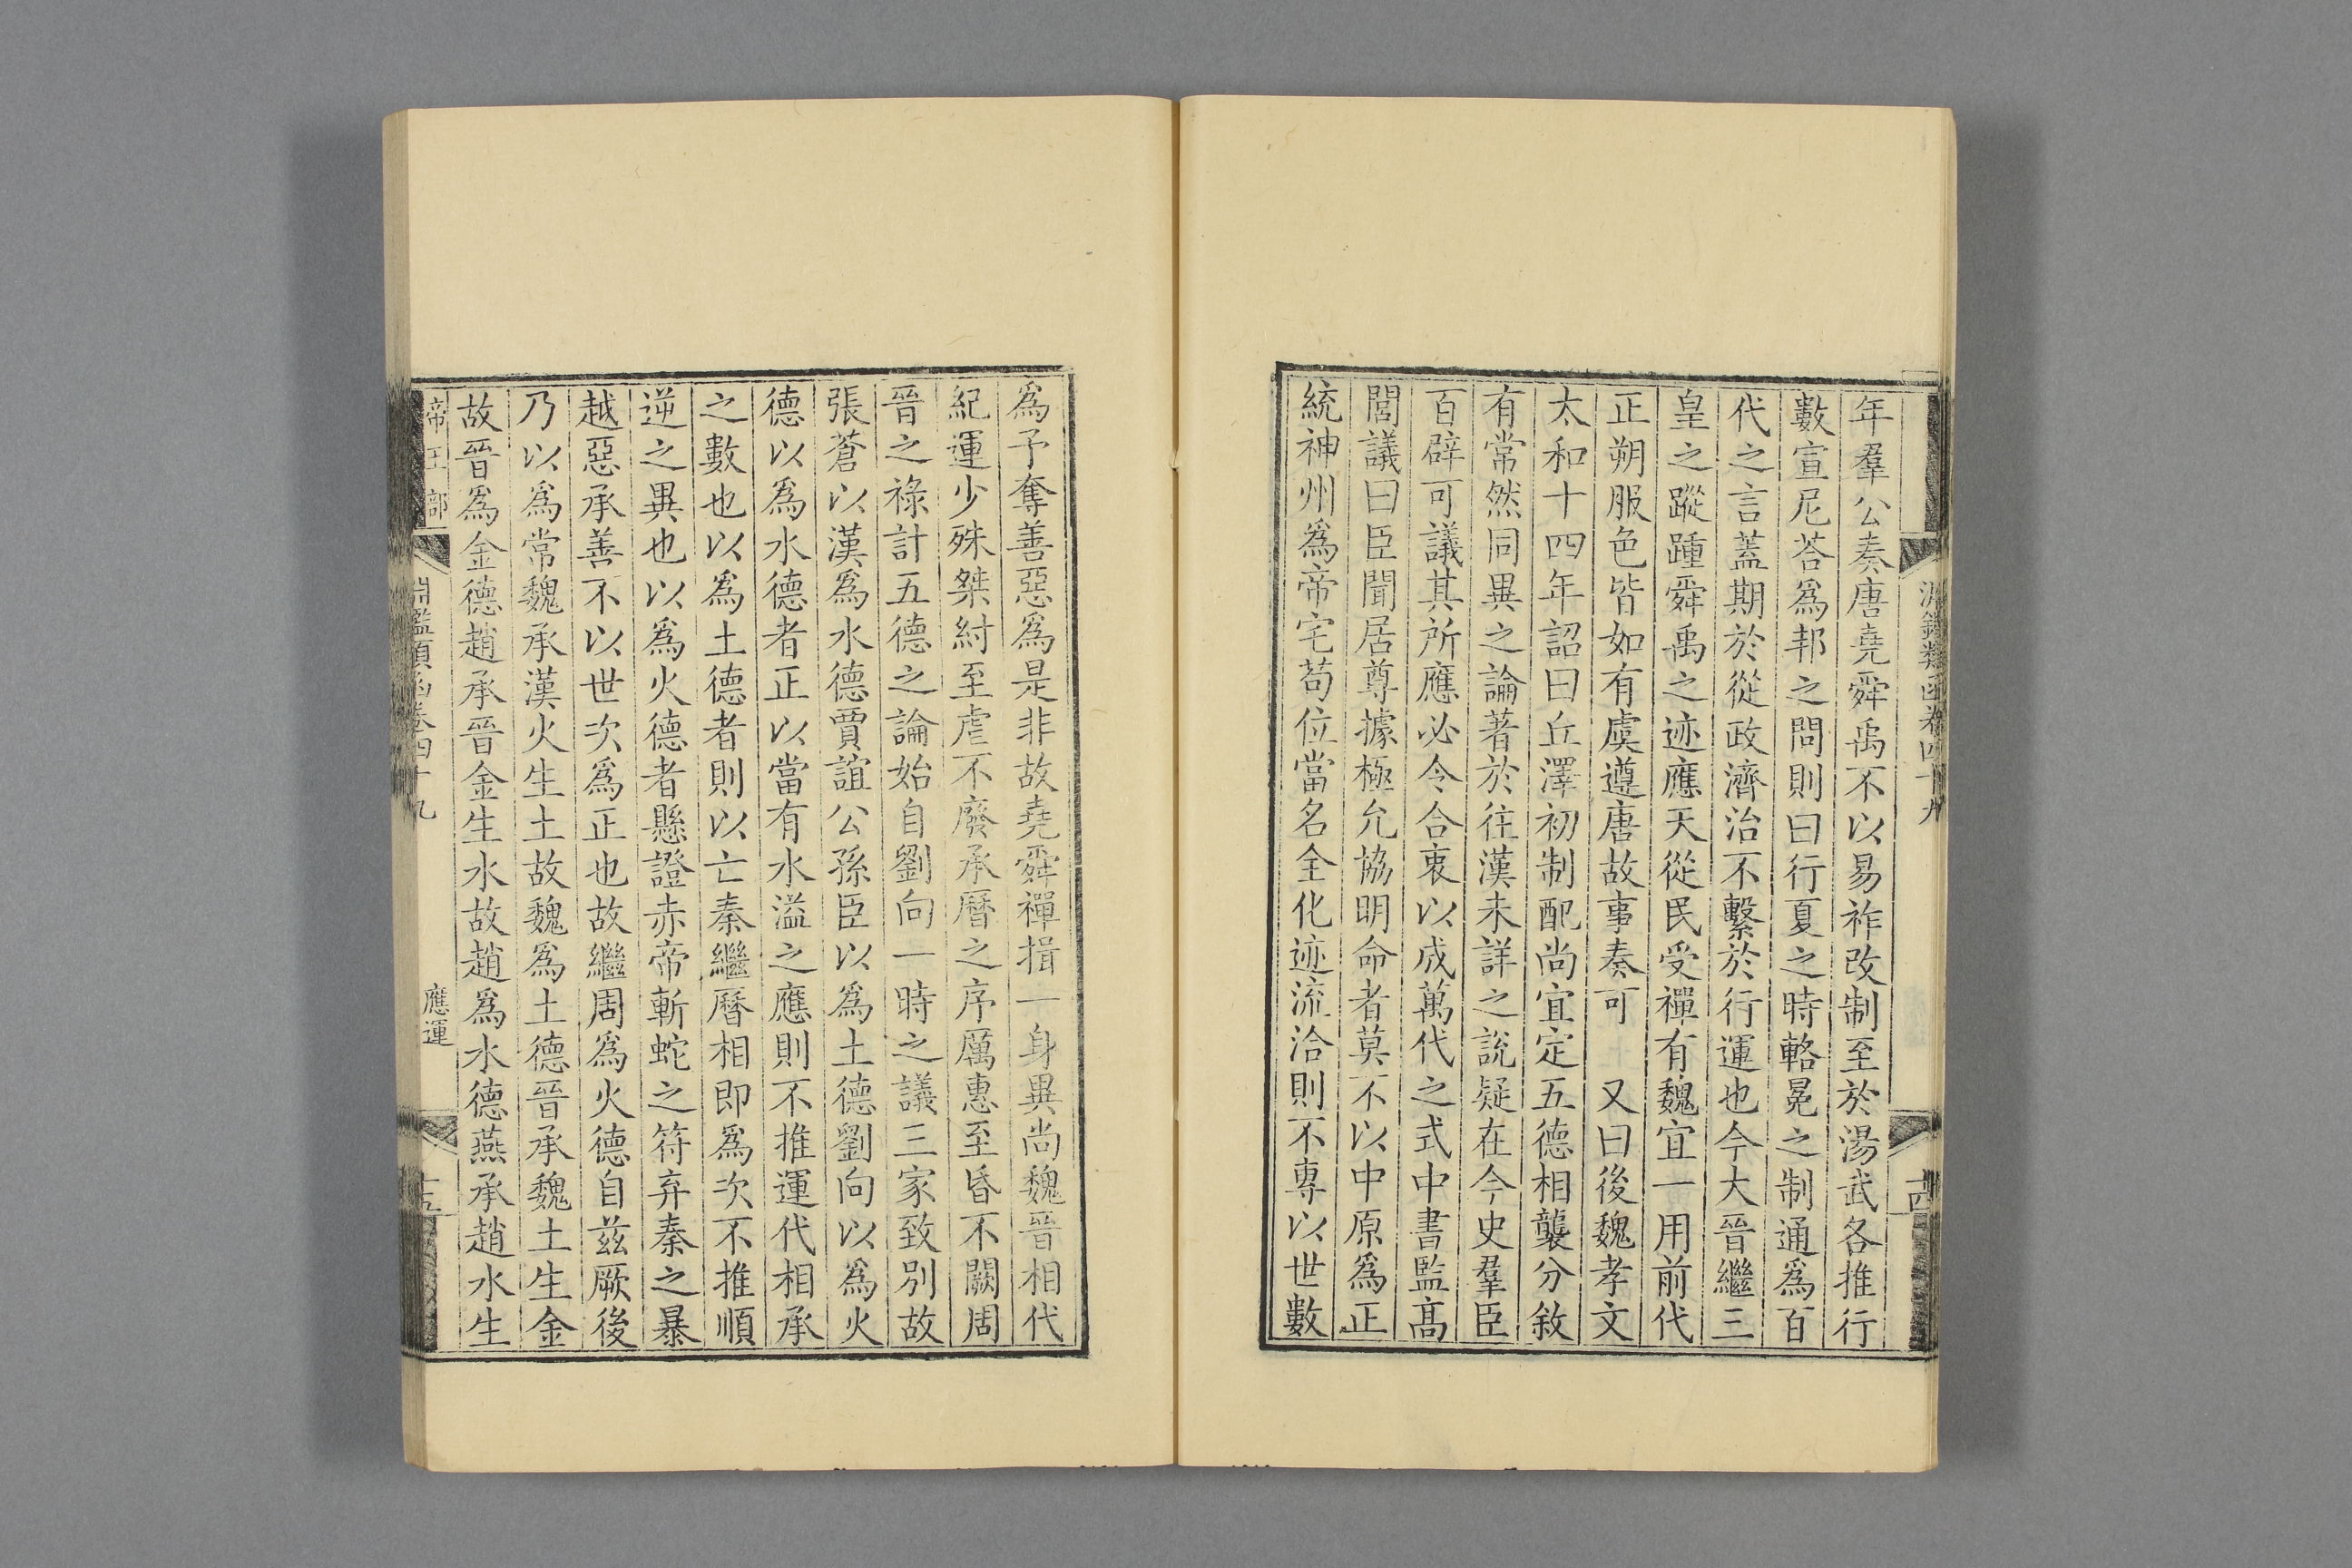 淵鑑類函卷四十九
十四
年羣公奏唐堯舜禹不以易祚改制至於湯武各推行
數宣尼荅爲邦之問則曰行夏之時輅冕之制通爲百
代之言蓋期於從政濟治不繫於行運也今大晉繼三
皇之蹤踵舜禹之迹應天從民受禪有魏宜一用前代
正朔服色皆如有虞遵唐故事奏可 又曰後魏孝文
太和十四年詔曰丘澤初制配尚宜定五德相襲分敘
有常然同異之論著於往漢未詳之說疑在今史羣臣
百辟可議其所應必令合衷以成萬代之式中書監高
閭議曰臣聞居尊據極允協明命者莫不以中原爲正
統神州爲帝宅苟位當名全化迹流洽則不專以世數
爲予奪善惡爲是非故堯舜禪揖一身異尚魏晉相代
紀運少殊桀紂至虐不廢承曆之序厲惠至昏不闕周
晉之祿計五德之論始自劉向一時之議三家致別故
張蒼以漢爲水德賈誼公孫臣以爲土德劉向以爲火
德以爲水德者正以當有水溢之應則不推運代相承
之數也以爲土德者則以亡秦繼曆相即爲次不推順
逆之異也以爲火德者懸證赤帝斬蛇之符弃秦之暴
越惡承善不以世次爲正也故繼周爲火德自茲厥後
乃以爲常魏承漢火生土故魏爲土德晉承魏土生金
故晉爲金德趙承晉金生水故趙爲水德燕承趙水生
帝王部
淵鑑類函卷四十九
應運
十五